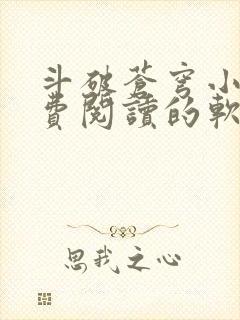 斗破苍穹小
費閱讀的軟
思我之心